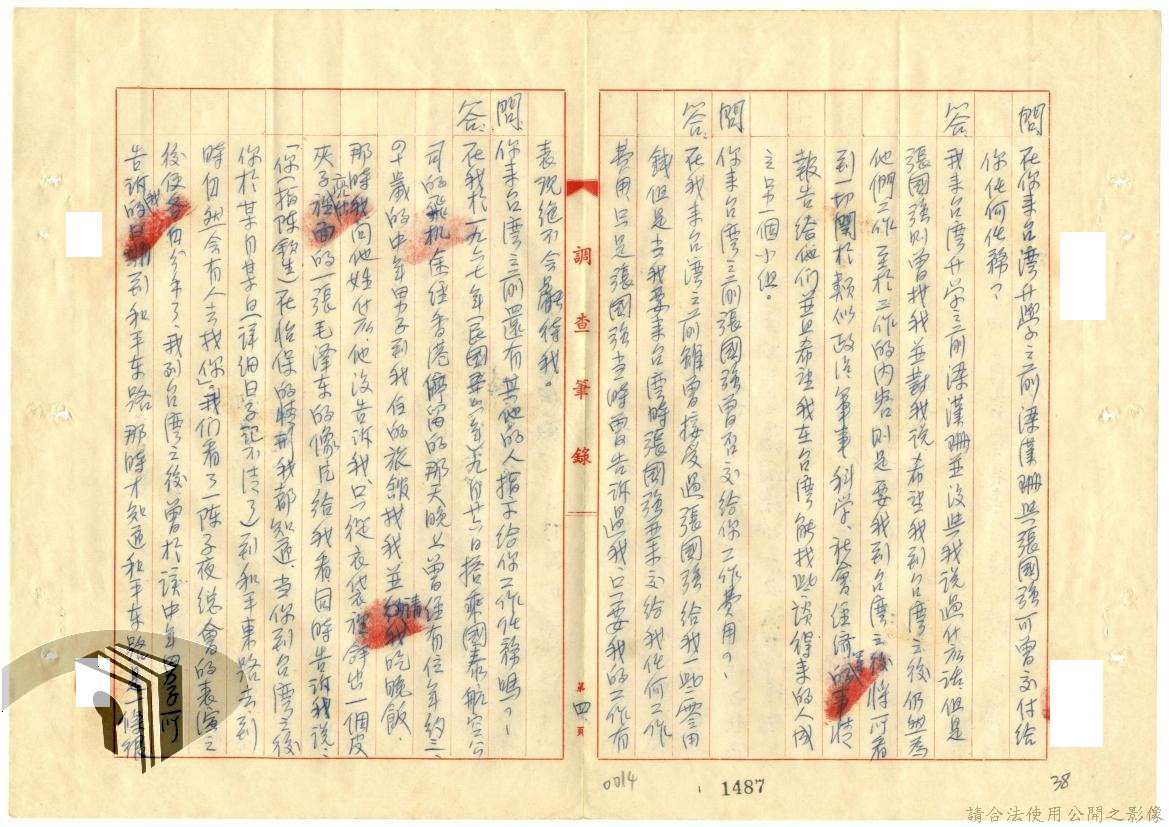 問 在你來台灣升學之前梁漢珊與張國強可曾交付給
你任何任務？
答 我來台灣升學之前梁漢珊並没與我說過什広話但是
張國強則曾找我並對我說希望我到台灣之後仍然為
他們工作至於工作的内容則是要我到台灣之後將可看
到一切關於類似政治、軍事、科学、社會經濟等事情
報告給他们並且希望我在台灣能找些談得来的人成
立另一個小组。
問 你来台灣之前張國強曾否交給你工作費用？
答 在我来台灣之前雖曾接受過張國強給我一些零用
錢但是当我要来台灣時張國強並未交給我任何工作
費用只是張國強当時曾告訴過我只要我的工作有
調查筆錄
第四頁
表現絶不会虧待我。
問 你来台灣之前還有其他的人指示给你工作任務嗎？
答 在我於一九六七年（民國五六年）九月廿六日搭乘國泰航空公
司的飛机途經香港停留的那天晚上曾經有位年約三、
四十歲的中年男子到我住的旅館找我並請我吃晚飯．
那時我问他姓什広他没告訴我只從衣袋裡拿出一個皮
夾子裡面的一張毛澤东的像片給我看同時告訴我說：
「你（指陳欽生）在怡保的情形我都知道、当你到台灣之後
你於某月某日（詳细日子記不清了）到和平東路去到
時自然会有人去找你」。我们看了一陣子夜總會的表演之
後便各自分手了、我到台灣之後曾於該中年男子所
告訴我的日期到和平东路那時才知道和平东路是一條很
0014
1487
38
請合法使用公開之影像